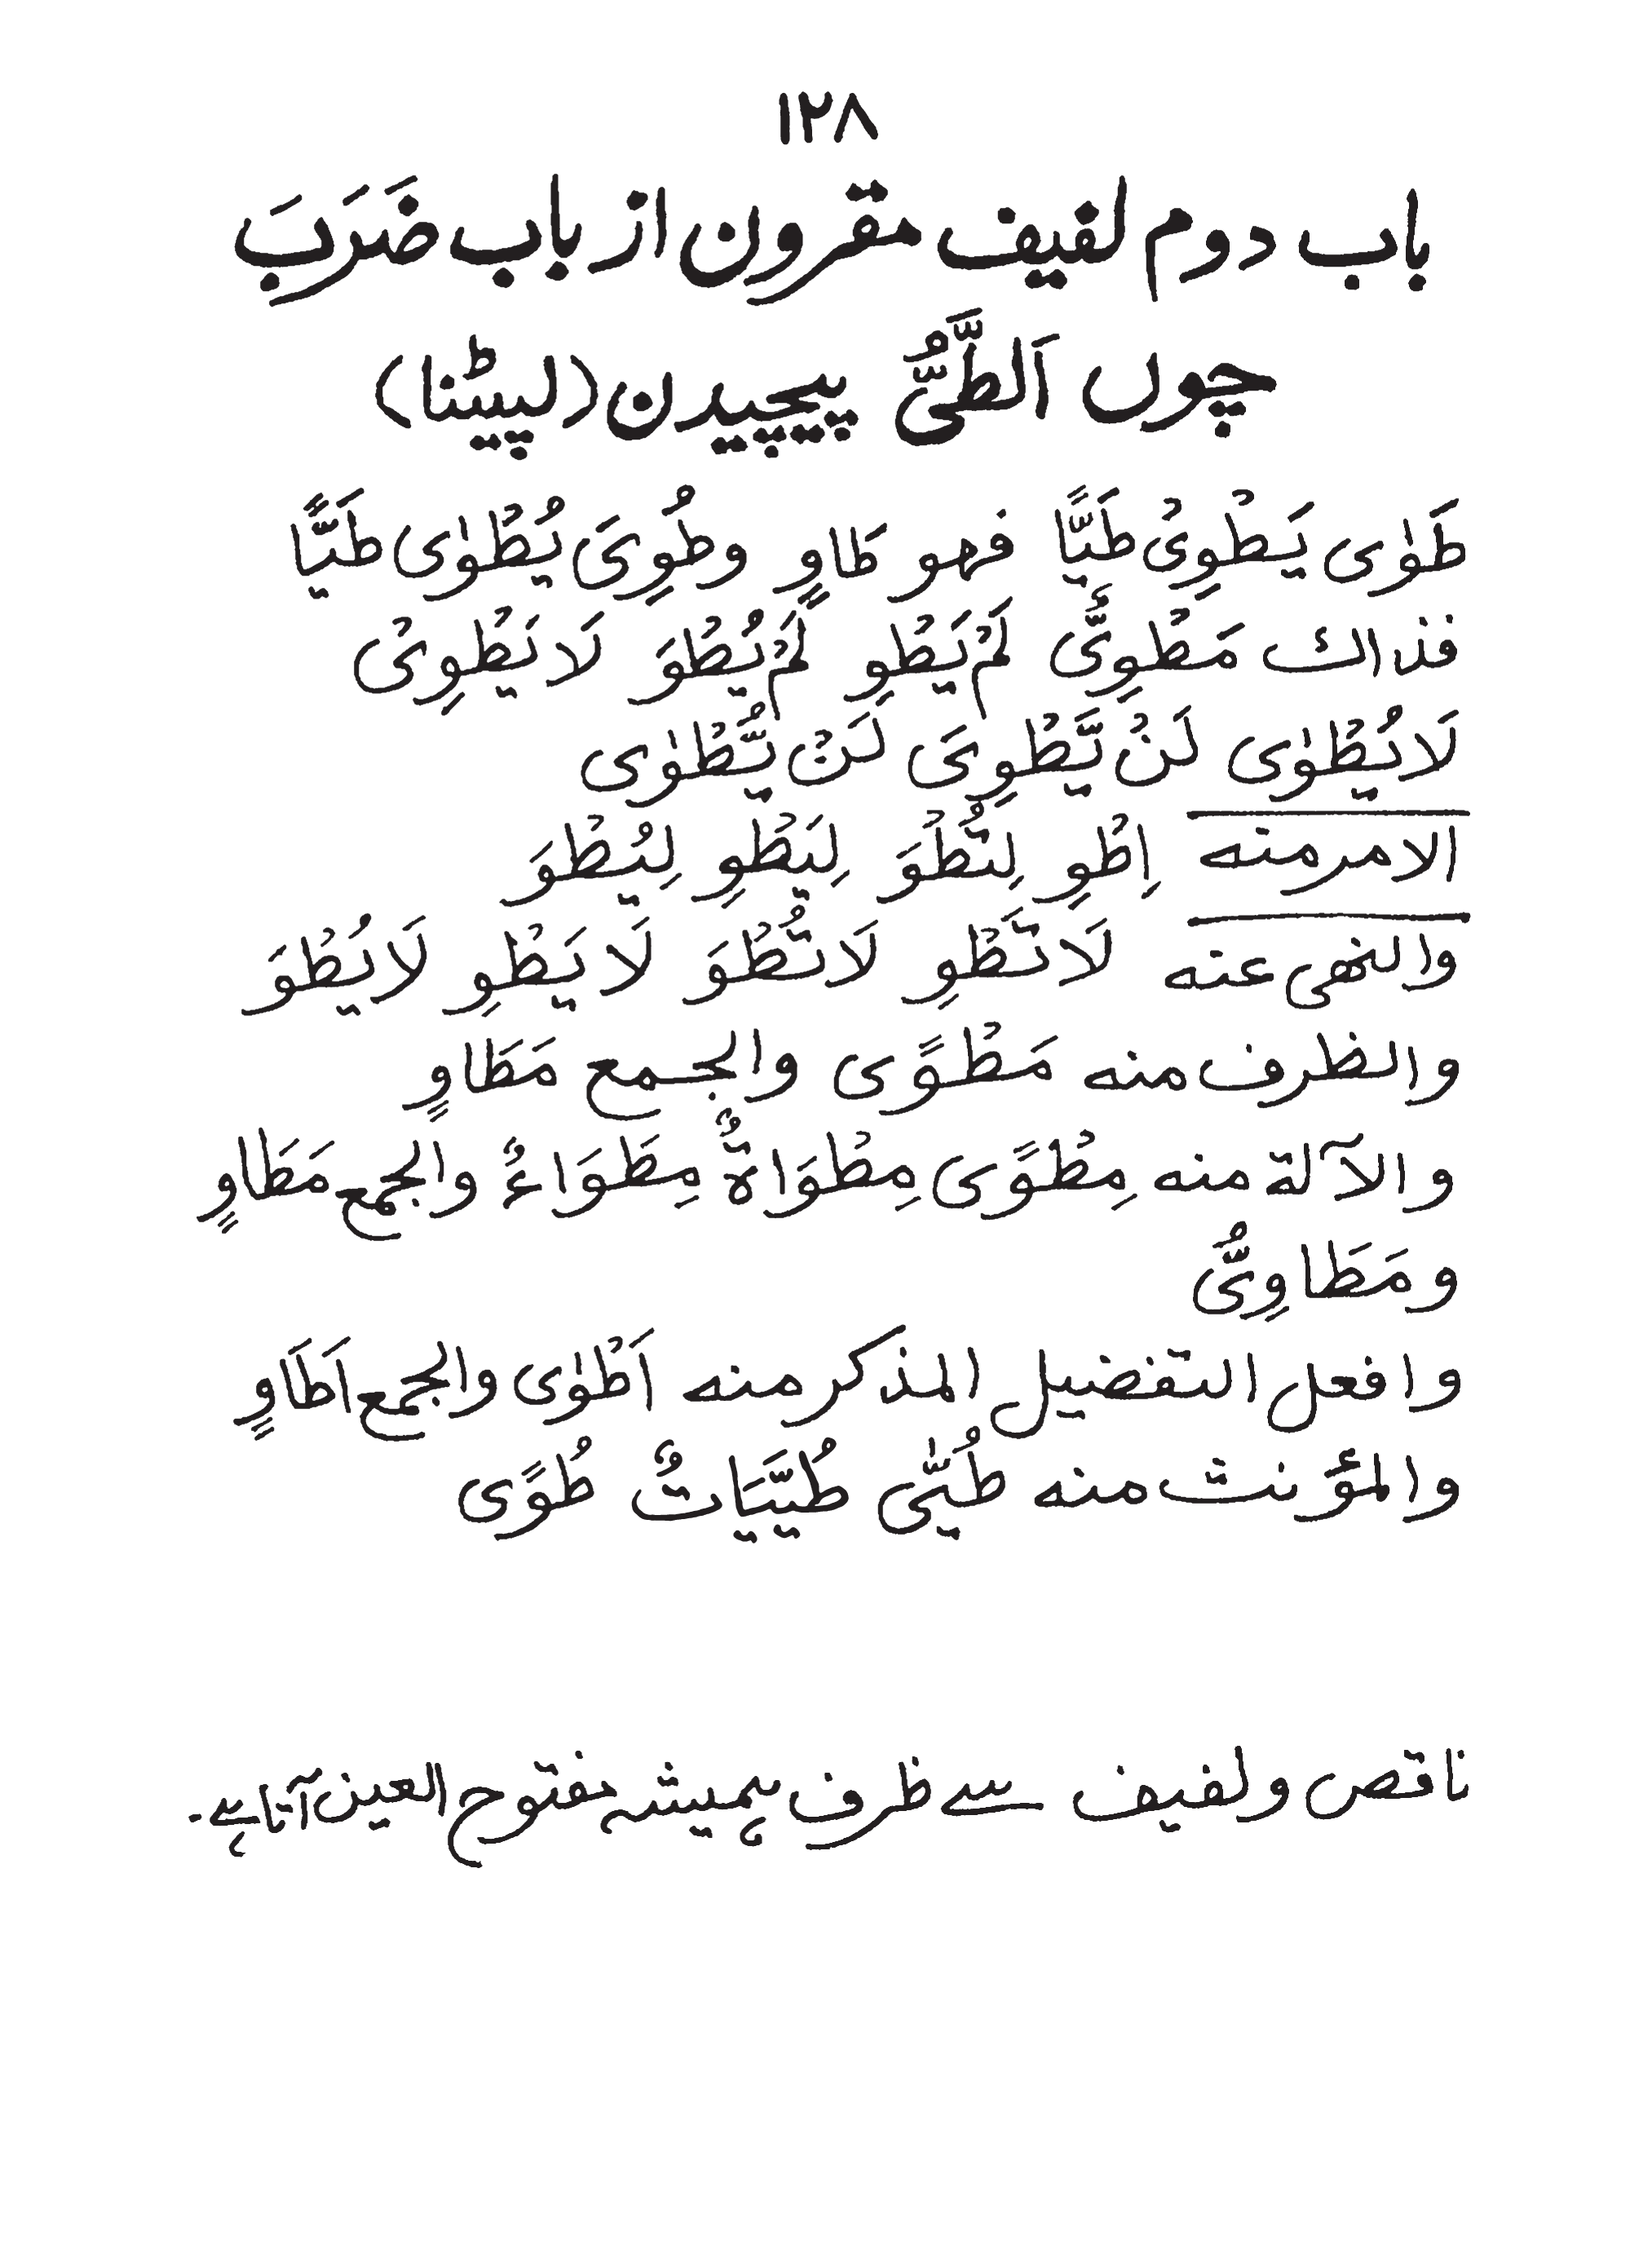 ۱۲۸
باب دوم لفیف مقرون از باب ضَرَبَ
چوں اَلطَّیُّ پیچیدن (لپیٹنا)
طَوٰی یَطْوِیْ طَیًّا فهو طَاوٍ وطُوِیَ یُطْوٰی طَیًّا
فذاك مَطْوِیٌّ لَمْ یَطْوِ لَمْ یُطْوَ لَا یَطْوِیْ
لَا یُطْوٰی لَنْ یَّطْوِیَ لَنْ یُّطْوٰی
الامر منه اِطْوِ لِتُطْوَ لِیَطْوِ لِیُطْوَ
والنهی عنه لَا تَطْوِ لَا تُطْوَ لَا یَطْوِ لَا یُطْوَ
والظرف منه مَطْوًی والجمع مَطَاوٍ
والآلة منه مِطْوًی مِطْوَاةٌ مِطَوَاءٌ والجمع مَطَاوٍ
و مَطَاوِیُّ
وافعل التفضیل المذکر منه اَطْوٰی والجمع اَطَاوٍ
والمؤنث منه طُیّٰی طُیَّیَاتٌ طُوًی
ناقص ولفیف سے ظرف ہمیشہ مفتوح العین آتا ہے۔